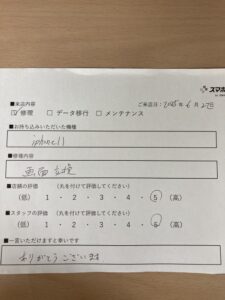 スマホ
■来店内容
ご来店日: 2025年 6月 27日
☑ 修理 □ データ移行 □ メンテナンス
■お持ち込みいただいた機種
iphone11
■修理内容
画面交換
■店舗の評価 (丸を付けて評価してください)
(低) 1 ・ 2 ・ 3 ・ 4 ・ 5 (高)
■スタッフの評価 (丸を付けて評価してください)
(低) 1 ・ 2 ・ 3 ・ 4 ・ 5 (高)
■一言いただけますと幸いです
ありがとうございます